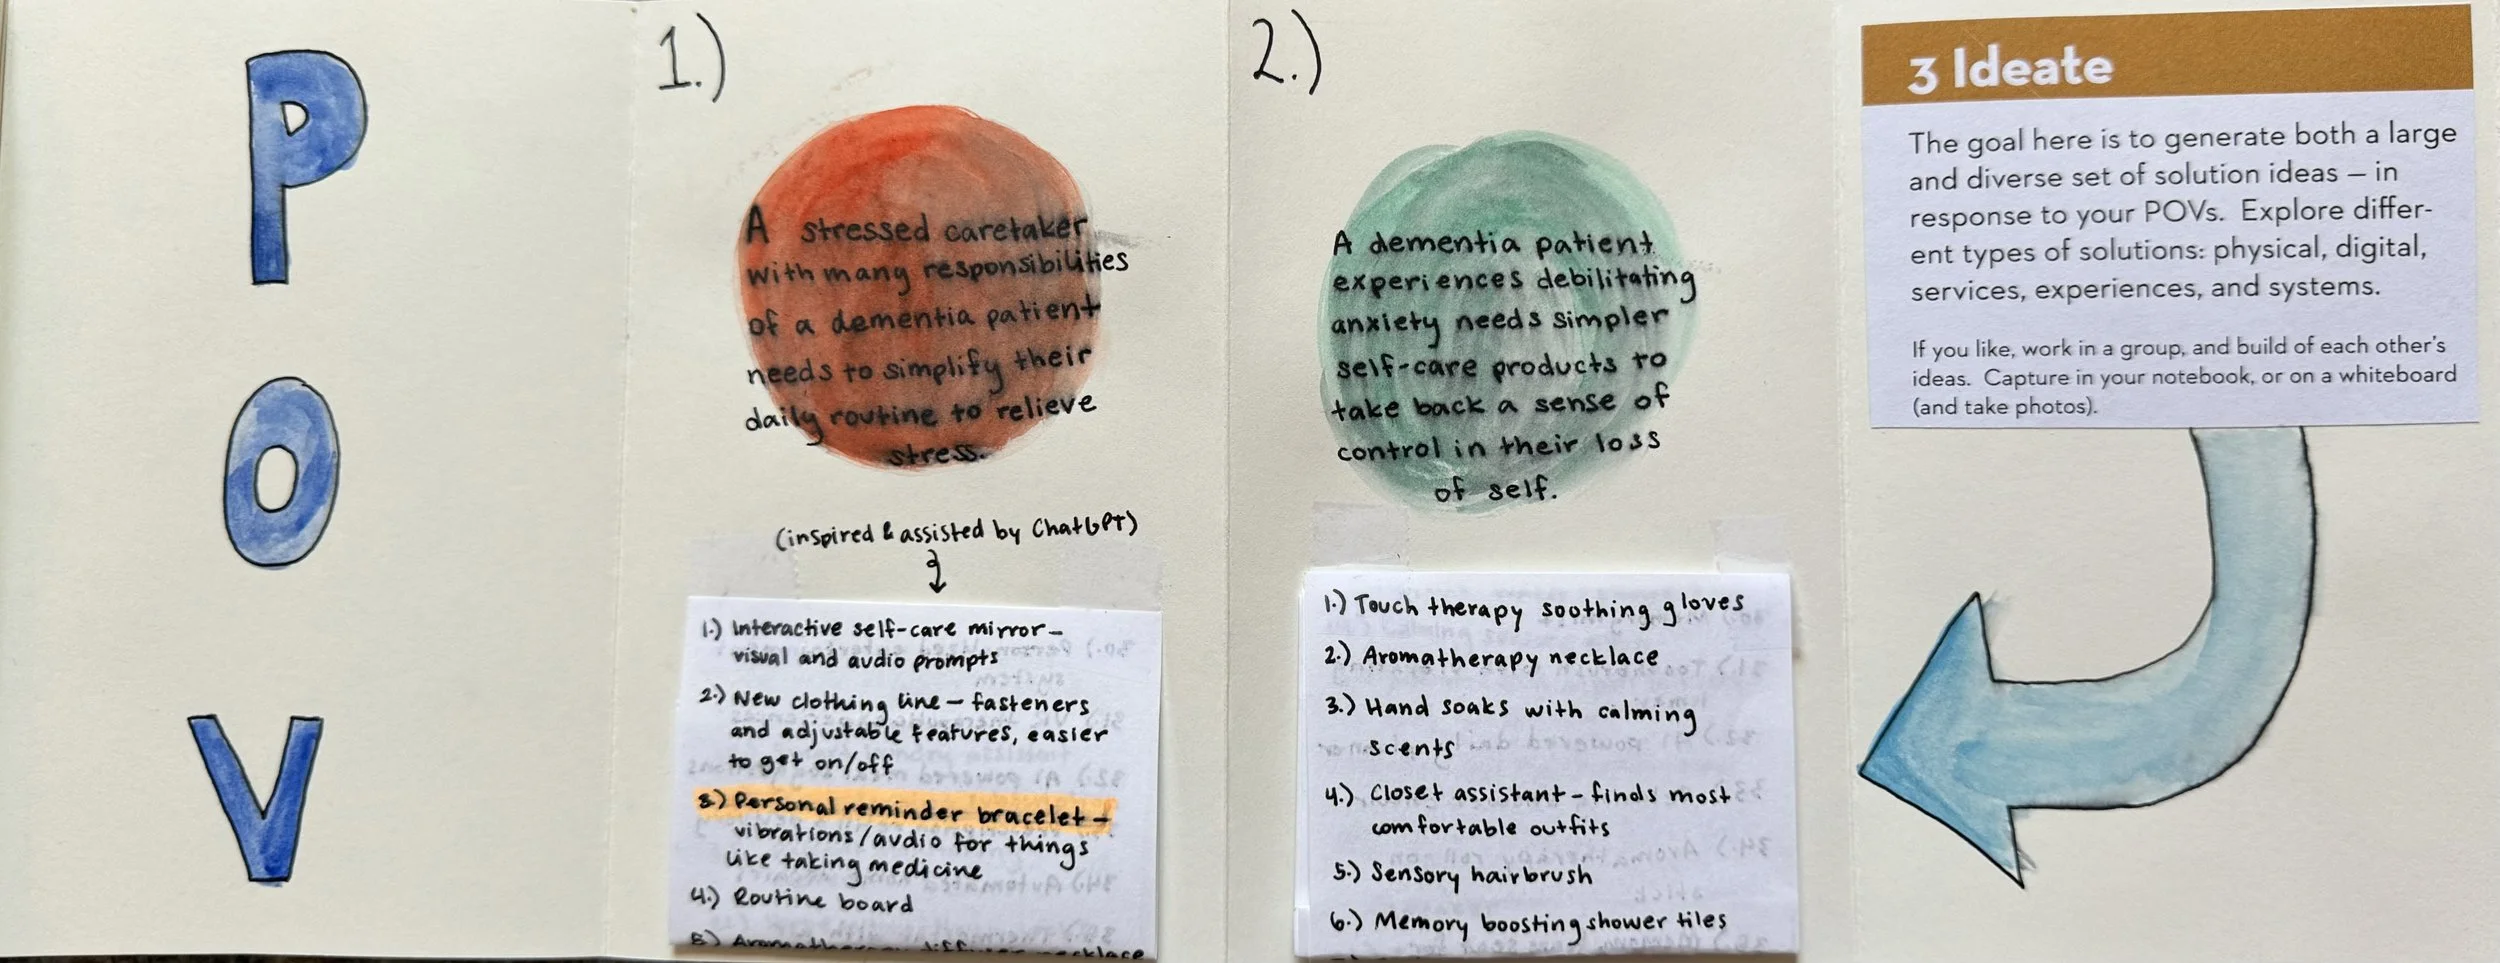 P
O
V
1.)
A stressed caretaker
with many responsibilities
of a dementia patient
needs to simplify their
daily routine to relieve
stress.
(inspired & assisted by ChatGPT)
1.) Interactive self-care mirror-
visual and audio prompts
2.) New clothing line - fasteners
and adjustable features, easier
to get on/off
3.) Personal reminder bracelet -
vibrations/audio for things
like taking medicine
4.) Routine board
5.) Aromatherapy diffuser necklace
2.)
A dementia patient
experiences debilitating
anxiety needs simpler
self-care products to
take back a sense of
control in their loss
of self.
1.) Touch therapy soothing gloves
2.) Aromatherapy necklace
3.) Hand soaks with calming
scents
4.) Closet assistant - finds most
comfortable outfits
5.) Sensory hairbrush
6.) Memory boosting shower tiles
3 Ideate
The goal here is to generate both a large
and diverse set of solution ideas — in
response to your POVs. Explore differ-
ent types of solutions: physical, digital,
services, experiences, and systems.
If you like, work in a group, and build of each other's
ideas. Capture in your notebook, or on a whiteboard
(and take photos).